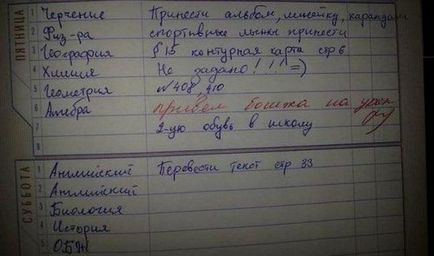 ПЯТНИЦА
1 Черчение Принести альбом, линейку, карандаш
2 Физ-ра спортивные лыжи принести
3 География § 15 контурная карта стр 6
4 Химия Не задано!!! =)
5 Геометрия № 408, 410
6 Алгебра привет бошка на
7 2-ую обувь в школу
8
СУББОТА
1 Английский Перевести текст стр 33
2 Английский
3 Биология
4 История
5 ОБЖ